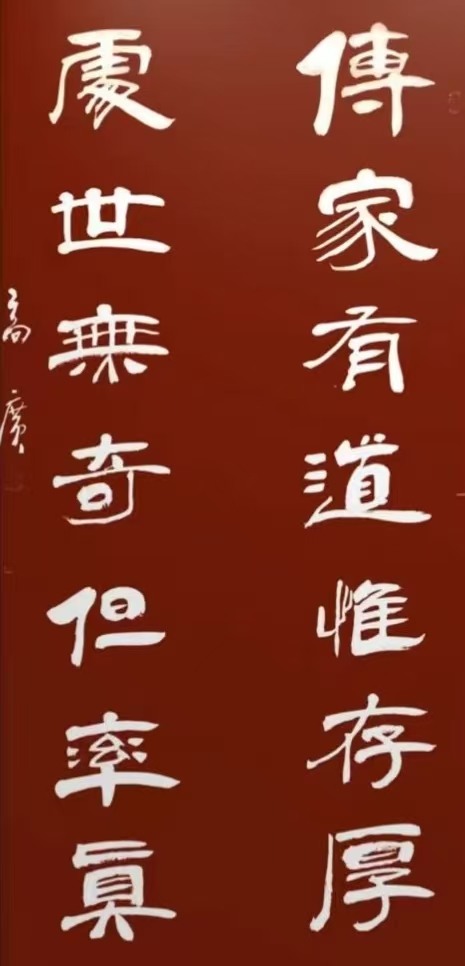 傳家有道惟存厚
處世無奇但率真
高廣